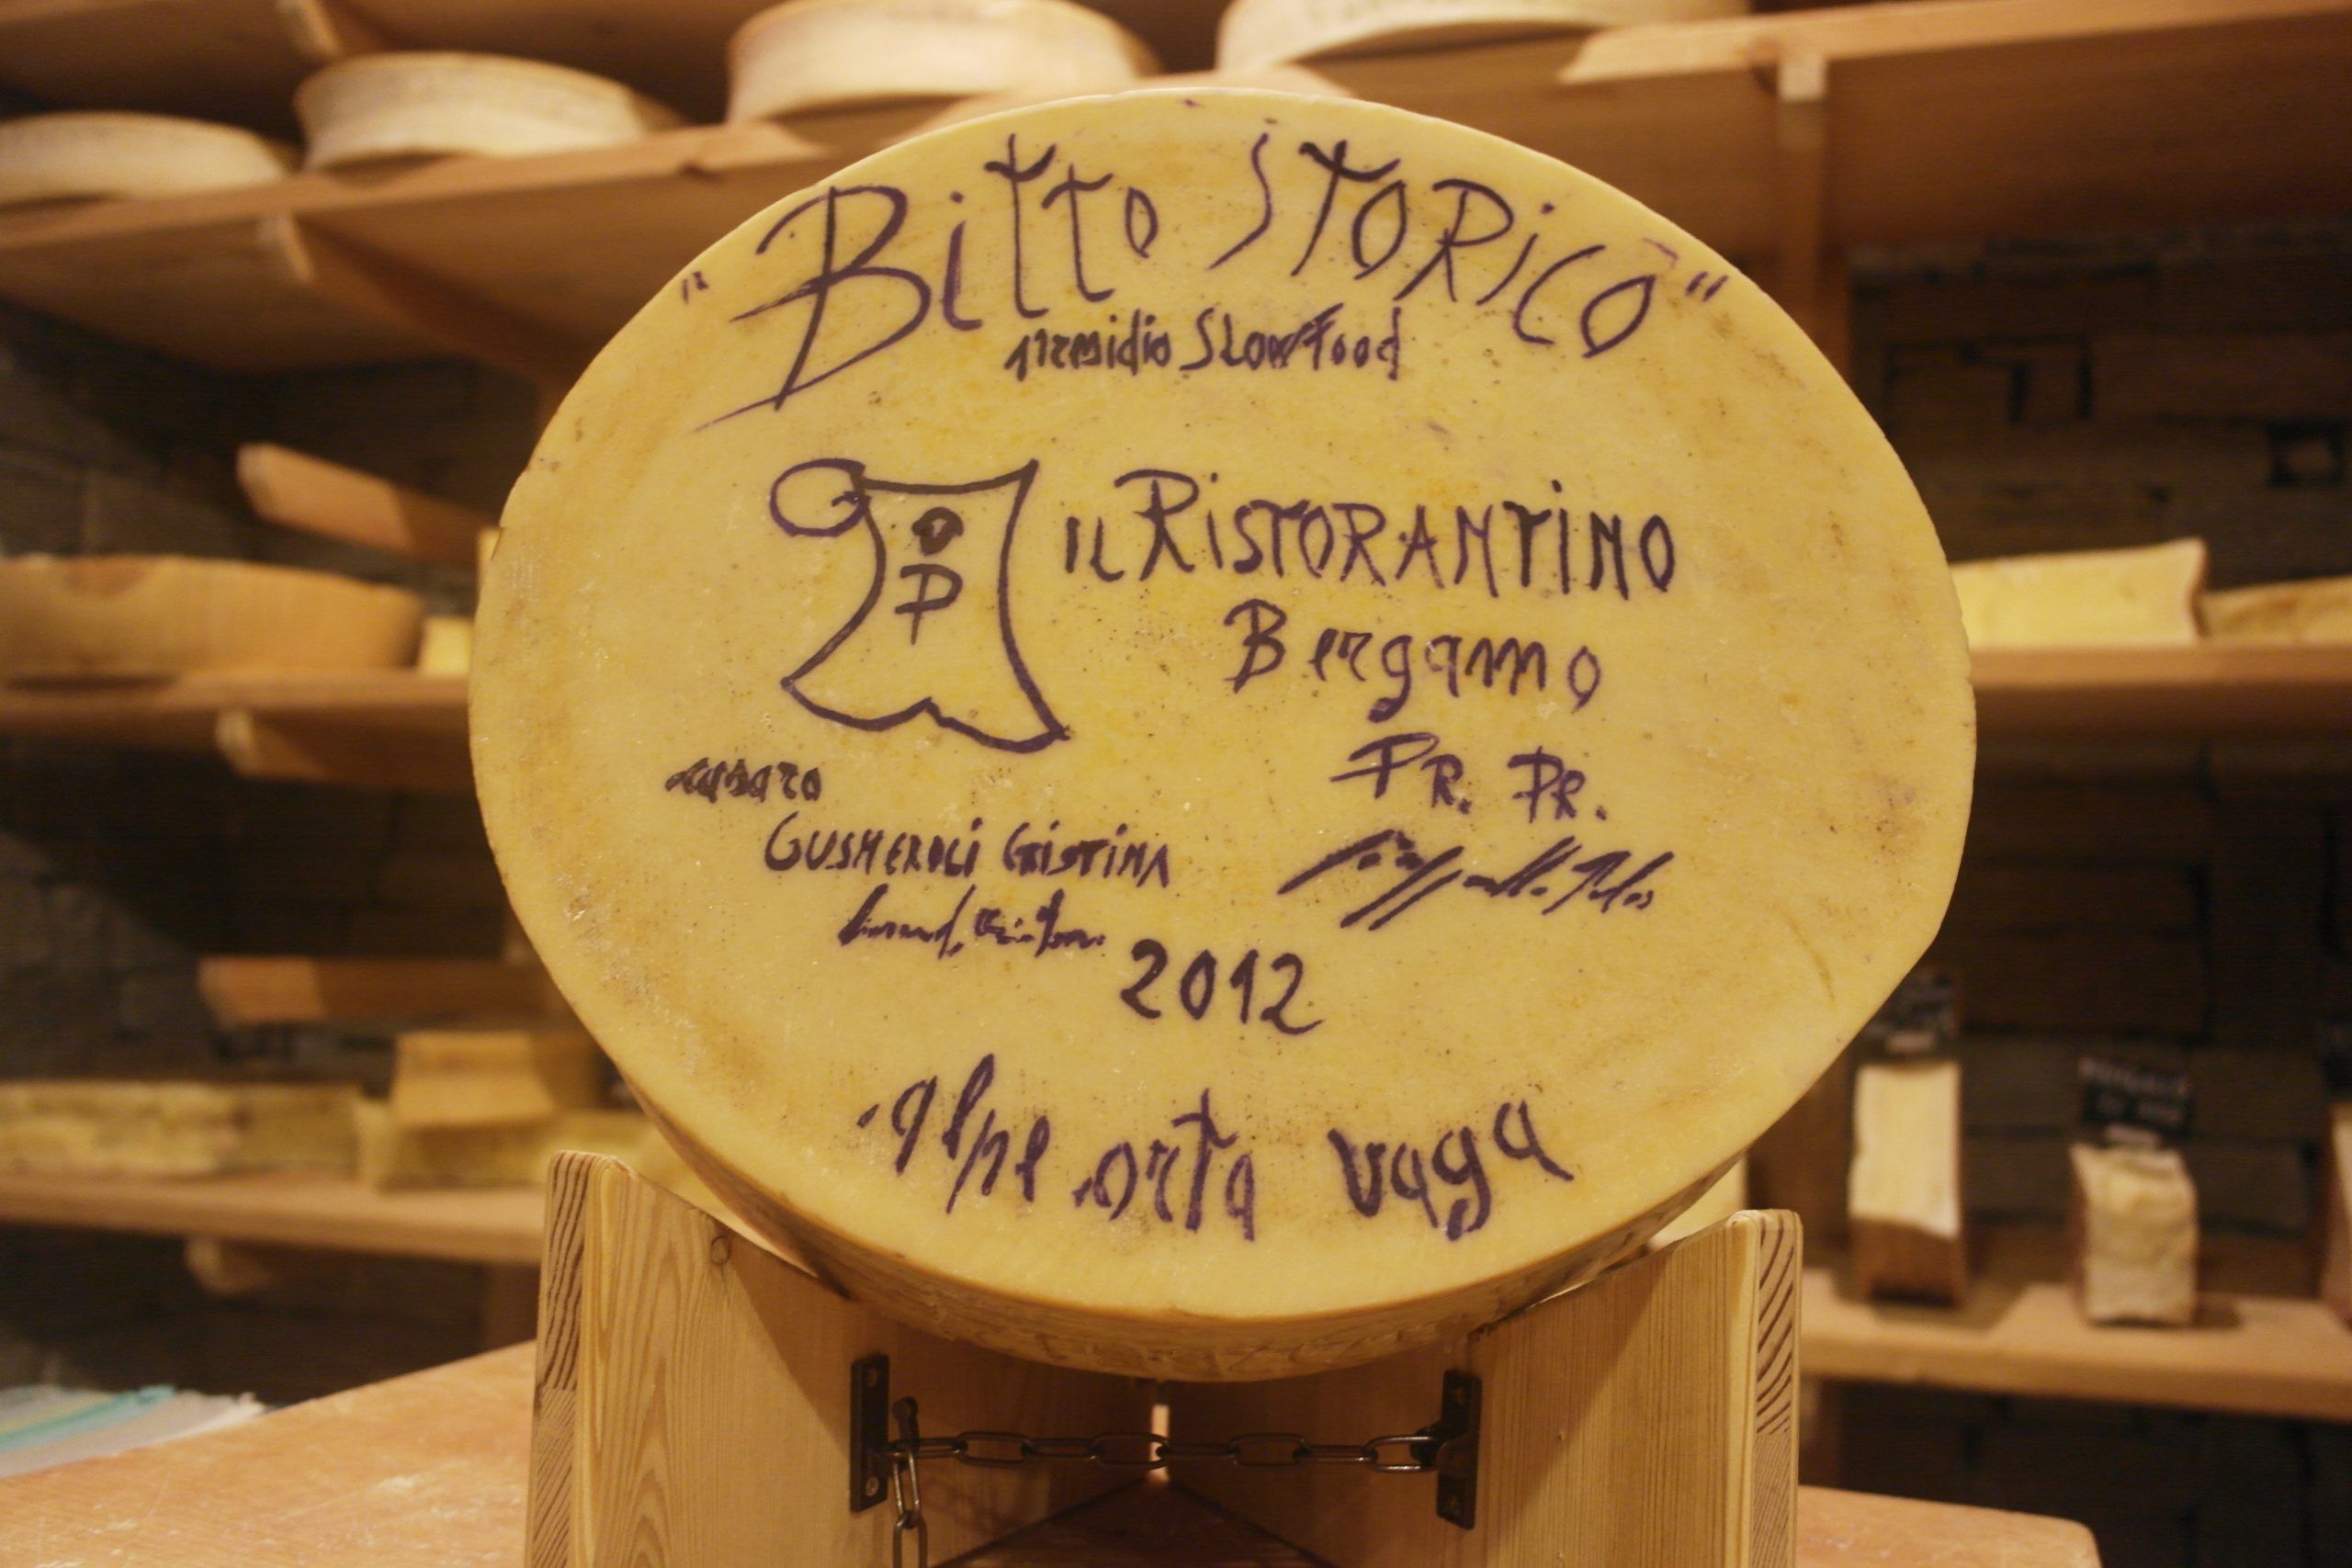 "Bitto STORiCO"
presidio Slow Food
P
iL RiSTORANTiNO
Bergamo
PR. PR.
casaro
GUSMEROLi CRiSTiNA
2012
alpe orta vaga